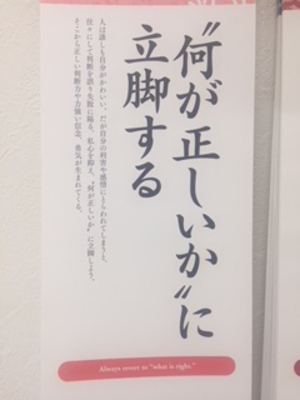 〝何が正しいか〟に
立脚する
人は誰しも自分がかわいい。だが自分の利害や感情にとらわれてしまうと、
往々にして判断を誤り失敗に陥る。私心を抑え、〝何が正しいか〟に立脚しよう。
そこから正しい判断力や力強い信念、勇気が生まれてくる。
Always revert to "what is right."